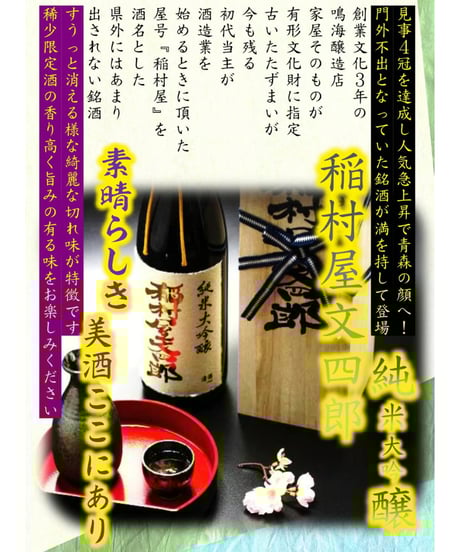 見事４冠を達成し人気急上昇で青森の顔へ！
門外不出となっていた銘酒が満を持して登場
創業文化３年の
鳴海醸造店
家屋そのものが
有形文化財に指定
古いたたずまいが
今も残る
初代当主が
酒造業を
始めるときに頂いた
屋号『稲村屋』を
酒名とした
県外にはあまり
出されない銘酒
すうっと消える様な綺麗な切れ味が特徴です
稀少限定酒の香り高く旨みの有る味をお楽しみください
稲村屋文四郎
純米大吟醸
素晴らしき
美酒ここにあり
純米大吟醸
稲村屋文四郎